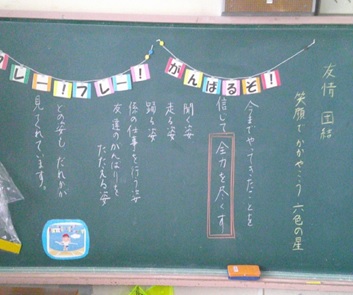 フレー!フレー!
がんばるぞ!
友情 団結
笑顔でかがやこう 六色の星
今までやってきたことを
信じて 全力を尽くす
聞く姿
走る姿
踊る姿
係の仕事を行う姿
友達のがんばりを
たたえる姿
どの姿も だれかが
見されています。